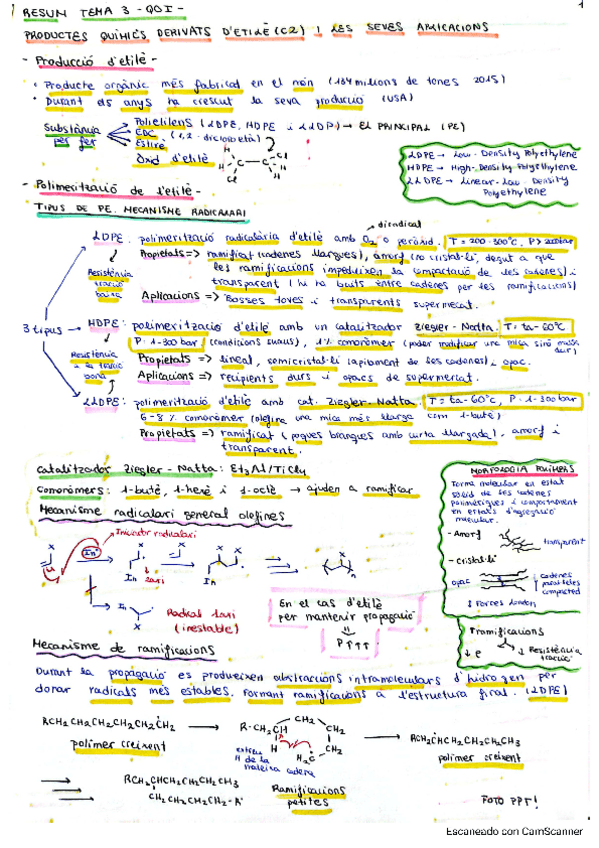 RESUM TEMA 3 - QOI -
PRODUCTES QUÍMICS DERIVATS D'ETILÈ (C2) I LES SEVES APLICACIONS
- Producció d'etilè -
• Producte orgànic més fabricat en el món (134 milions de tones 2015)
• Durant els anys ha crescut la seva producció (USA)
Substància per fer
Polietilens (LDPE, HDPE i LLDP) → EL PRINCIPAL (PE)
EDC (1,2-dicloroetà)
Estirè
Òxid d'etilè
H Cl
H C — C H
Cl H
LDPE → Low-Density Polyethylene
HDPE → High-Density Polyethylene
LLDPE → Linear-Low Density
Polyethylene
- Polimerització de l'etilè -
TIPUS DE PE. MECANISME RADICALARI
diradical
LDPE: polimerització radicalària d'etilè amb O2 o peròxid.
Propietats => ramificat (cadenes llargues), amorf (no cristal·lí, degut a que
les ramificacions impedeixen la compactació de les cadenes) i
transparent (hi ha buits entre cadenes per les ramificacions)
Resistència
tracció
baixa
Aplicacions => Bosses toves i transparents supermercat.
3 tipus
HDPE: polimerització d'etilè amb un catalitzador Ziegler-Natta. T = ta-60°C
P = 1-300 bar (condicions suaus), 1% comonòmer (poder modificar una mica sinó massa
dur)
Resistència
a la tracció
bona
Propietats => lineal, semicristal·lí (apilament de les cadenes) i opac.
Aplicacions => recipients durs i opacs de supermercat.
LLDPE: polimerització d'etilè amb cat. Ziegler-Natta. T = ta-60°C, P = 1-300 bar
6-8% comonòmer (olefina una mica més llarga com 1-butè)
Propietats => ramificat (poques branques amb curta llargada), amorf i
transparent.
Catalitzador Ziegler-Natta: Et3Al/TiCl4
Comonòmers: 1-butè, 1-hexè i 1-octè → ajuden a ramificar
Mecanisme radicalari general olefines
Iniciador radicalari
X
In
X
In
2ari
X X
In
X
n
In
X
Radical 1ari
(inestable)
En el cas d'etilè
per mantenir propagació
P↑↑↑
MORFOLOGIA POLÍMERS
Forma molecular en estat
sòlid de les cadenes
polimèriques i comportament
en estats d'agregació
molecular.
- Amorf
transparent
- Cristal·lí
opac
cadenes
paral·leles
compacted
Forces London
↑ramificacions
↓ρ
↓Resistència
tracció
Mecanisme de ramificacions
Durant la propagació es produeixen abstraccions intramoleculars d'hidrogen per
donar radicals més estables, formant ramificacions a l'estructura final. (LDPE)
RCH2CH2CH2CH2CH2ĊH2
polimer creixent
R-CH2CH
CH2
CH2
CH2
H
H2C
extreu
H de la
mateixa cadena
RCH2ĊHCH2CH2CH2CH3
polimer creixent
RCH2CHCH2CH2CH2CH3
CH2CH2CH2CH2-R'
Ramificacions
petites
FOTO PPT!
Escaneado con CamScanner